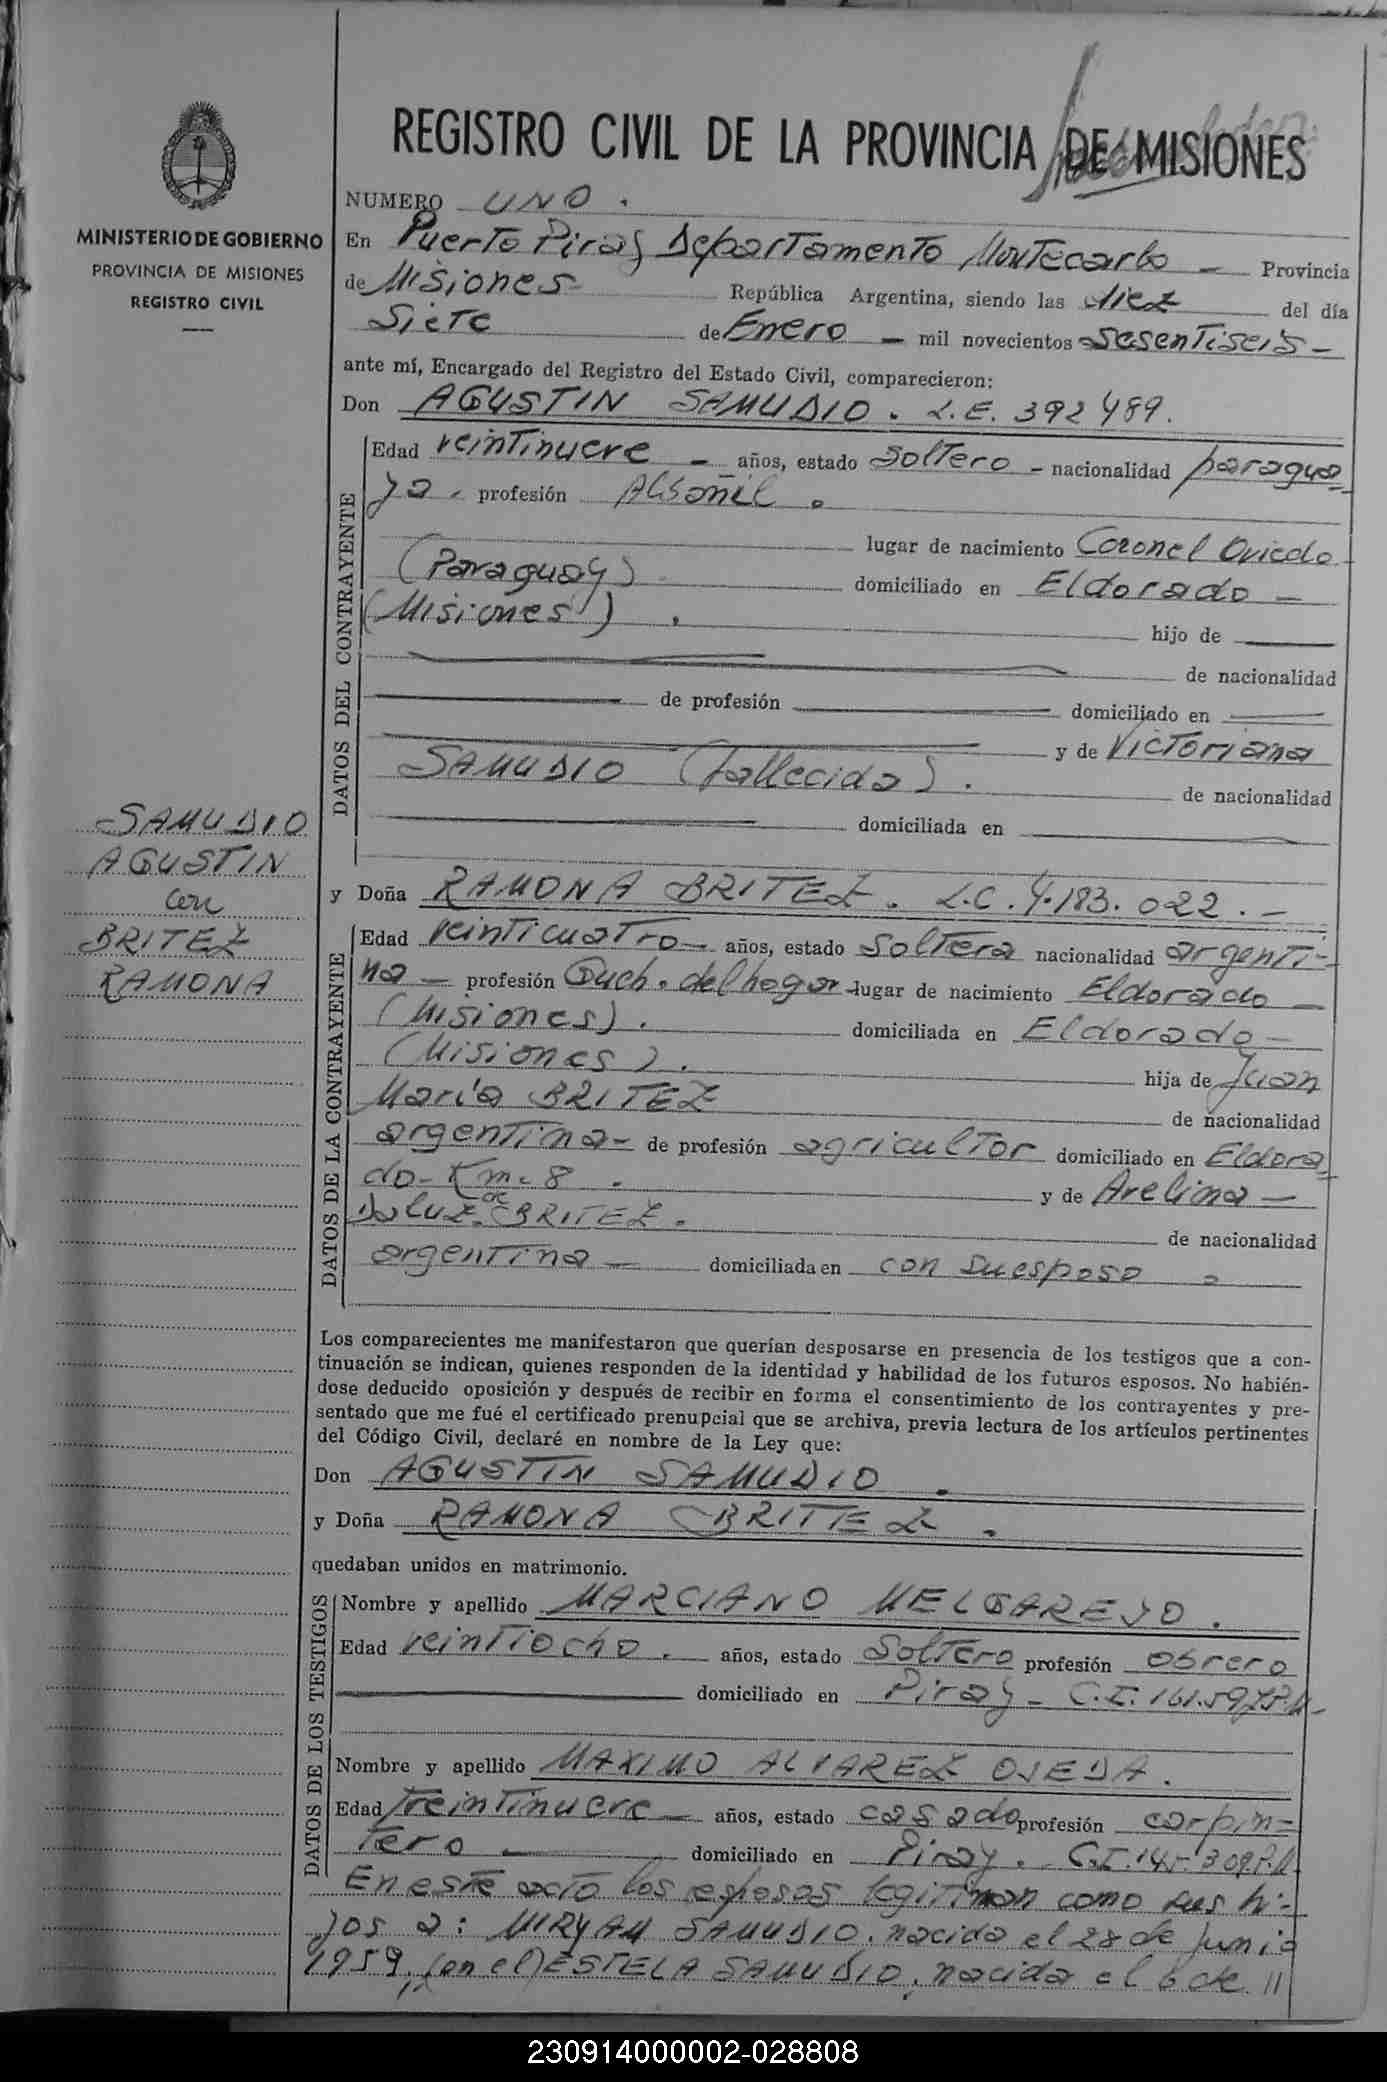 REGISTRO CIVIL DE LA PROVINCIA DE MISIONES
MINISTERIO DE GOBIERNO
PROVINCIA DE MISIONES
REGISTRO CIVIL
SAMUDIO
AGUSTIN
con
BRITEZ
RAMONA
NUMERO UNO.
En Puerto Piray Departamento Montecarlo - Provincia
de Misiones- República Argentina, siendo las diez del día
Siete de Enero - mil novecientos sesentiseis-
ante mí, Encargado del Registro del Estado Civil, comparecieron:
Don AGUSTIN SAMUDIO. L.E. 392489.
DATOS DEL CONTRAYENTE
Edad veintinueve - años, estado Soltero - nacionalidad paragua
ya. profesión Albañil.
lugar de nacimiento Coronel Oviedo
(Paraguay) domiciliado en Eldorado -
(Misiones). hijo de
de nacionalidad
de profesión domiciliado en
y de Victoriana
SAMUDIO (fallecida). de nacionalidad
domiciliada en
y Doña RAMONA BRITEZ. L.C. 4.183.022.-
DATOS DE LA CONTRAYENTE
Edad veinticuatro- años, estado Soltera nacionalidad argenti-
na - profesión Queh. del hogar lugar de nacimiento Eldorado -
(Misiones). domiciliada en Eldorado-
(Misiones). hija de Juan
María BRITEZ de nacionalidad
argentina- de profesión agricultor domiciliado en Eldora
do- Km. 8. y de Avelina -
Da Luz de BRITEZ. de nacionalidad
argentina - domiciliada en con su esposo.
Los comparecientes me manifestaron que querían desposarse en presencia de los testigos que a con-
tinuación se indican, quienes responden de la identidad y habilidad de los futuros esposos. No habién-
dose deducido oposición y después de recibir en forma el consentimiento de los contrayentes y pre-
sentado que me fué el certificado prenupcial que se archiva, previa lectura de los artículos pertinentes
del Código Civil, declaré en nombre de la Ley que:
Don AGUSTIN SAMUDIO.
y Doña RAMONA BRITEZ.
quedaban unidos en matrimonio.
DATOS DE LOS TESTIGOS
Nombre y apellido MARCIANO MELGAREJO.
Edad veintiocho. años, estado Soltero profesión obrero
domiciliado en Piray- C.I. 161.597
Nombre y apellido MAXIMO ALVAREZ OJEDA.
Edad treintinueve - años, estado casado profesión carpin-
tero domiciliado en Piray. C.I. 145.309
En este acto los esposos legitiman como sus hi-
jos a: MIRYAM SAMUDIO, nacida el 28 de junio
1959, (en el) ESTELA SAMUDIO, nacida el 6 de "
230914000002-028808